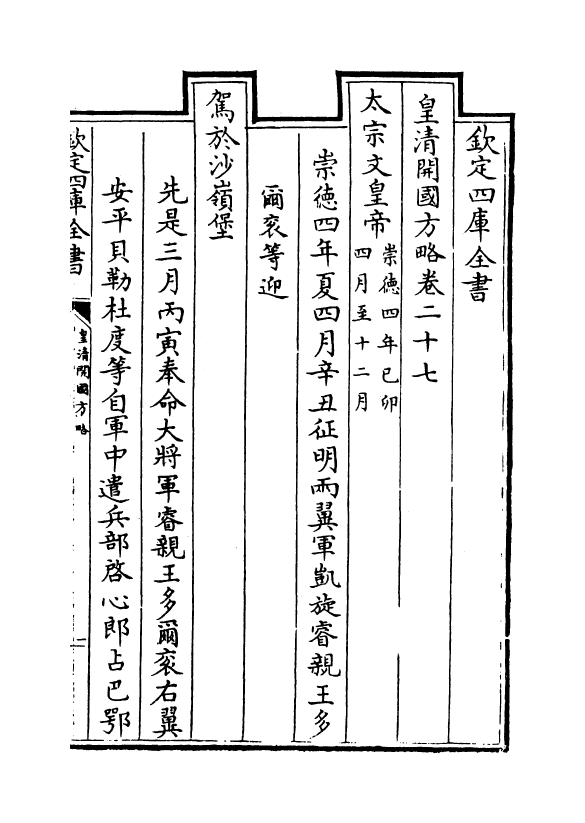 欽定四庫全書
皇清開國方略卷二十七
太宗文皇帝崇徳四年己卯四月至十二月
崇徳四年夏四月辛丑征明兩翼軍凱旋睿親王多
爾衮等迎
駕於沙嶺堡
先是三月丙寅奉命大將軍睿親王多爾衮右翼
安平貝勒杜度等自軍中遣兵部啓心郎占巴鄂
欽定四庫全書
皇清開國方略